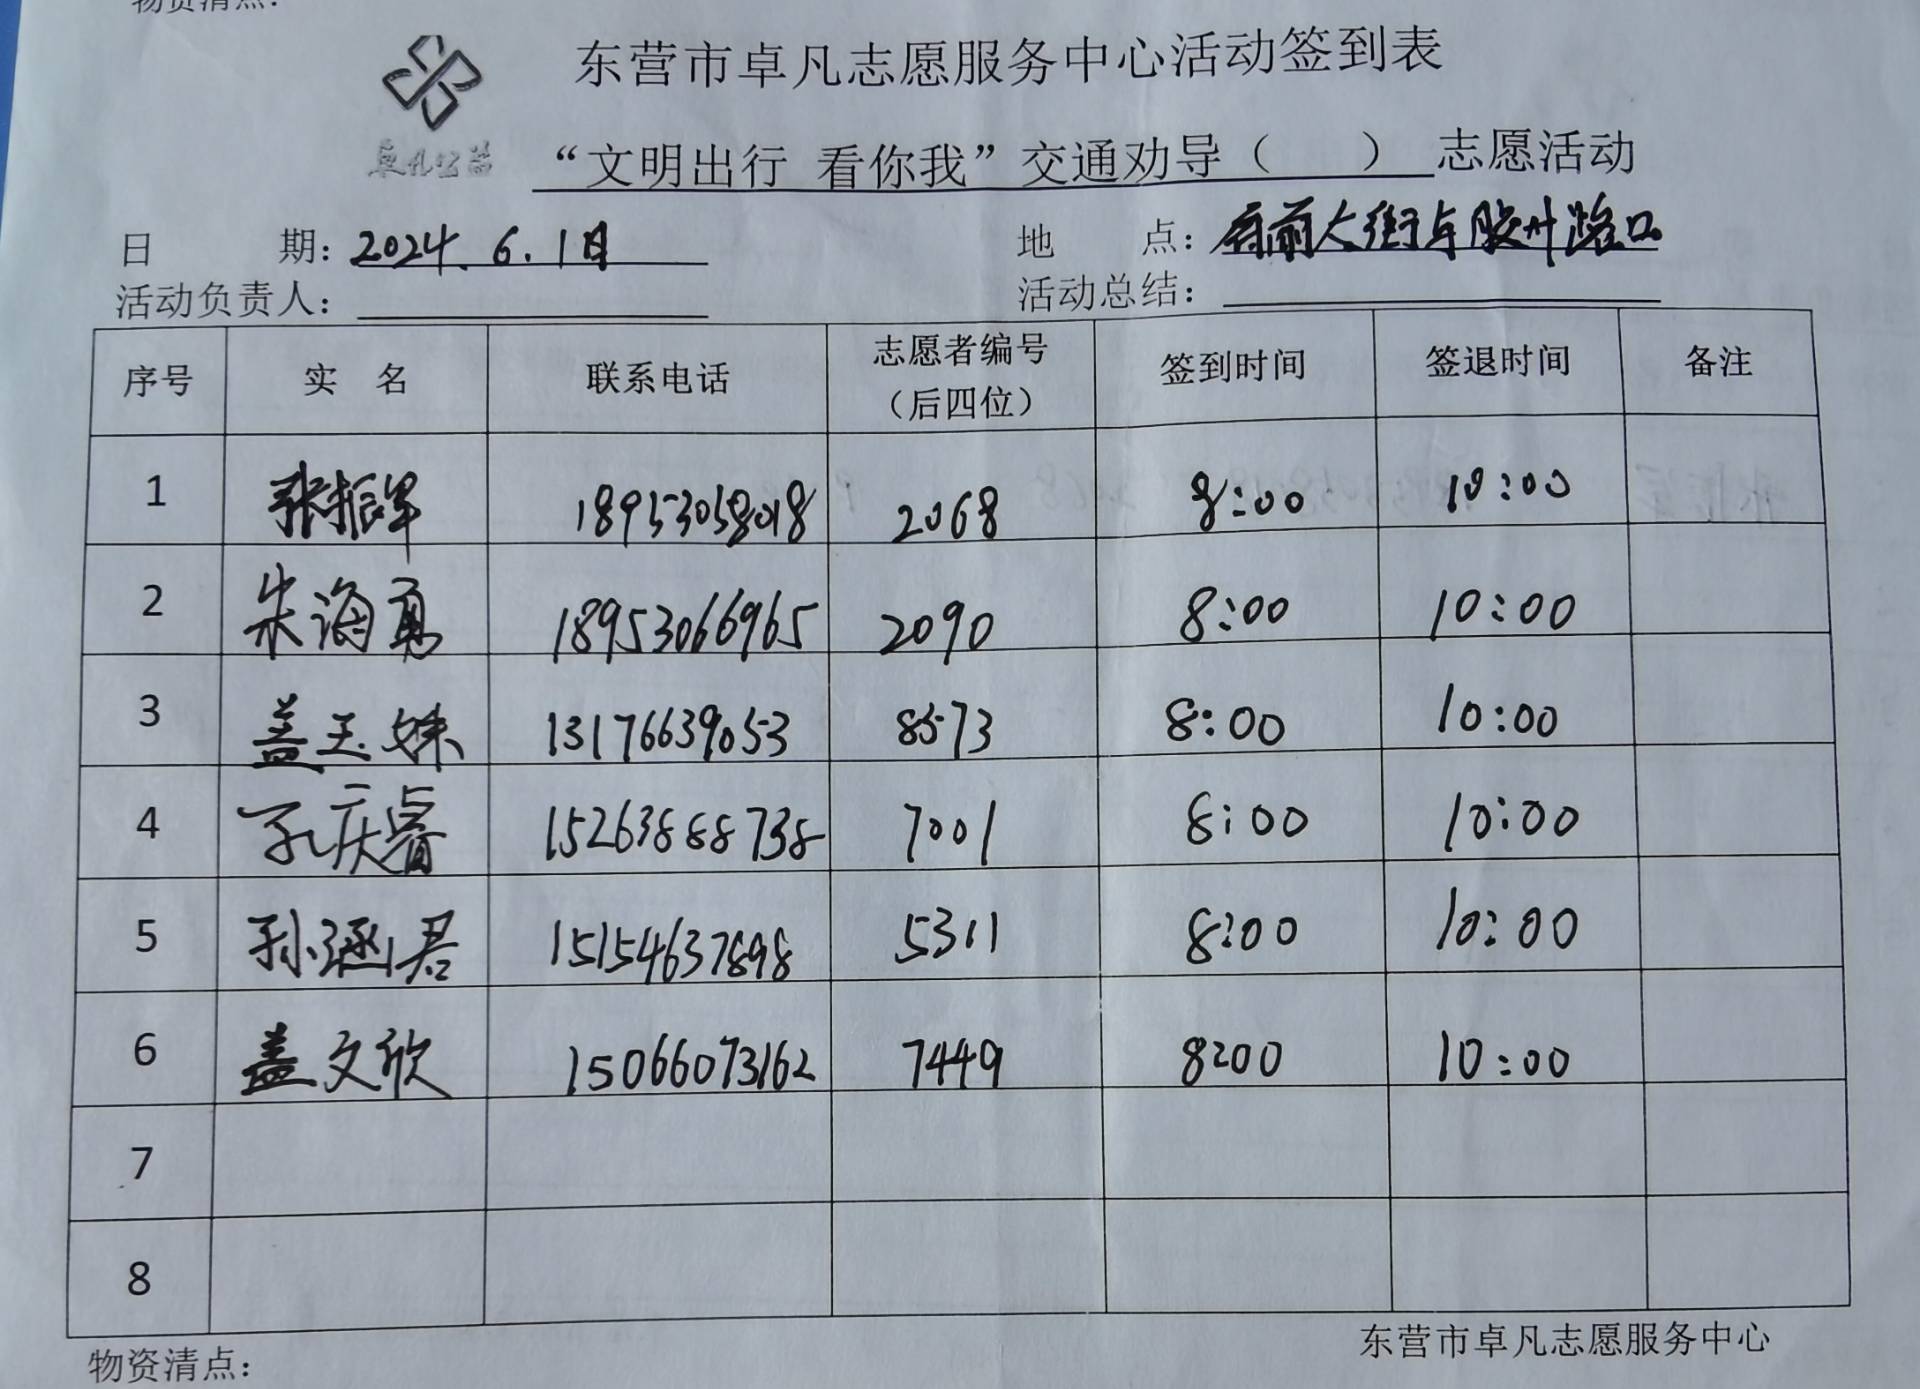 物资清点：
东营市卓凡志愿服务中心活动签到表
卓凡公益
“文明出行 看你我”交通劝导（ ） 志愿活动
日 期：2024.6.1日 地 点：府前大街与胶州路口
活动负责人： 活动总结：
序号 实 名 联系电话 志愿者编号（后四位） 签到时间 签退时间 备注
1 张振军 18953058018 2068 8:00 10:00
2 朱海勇 18953066965 2090 8:00 10:00
3 盖玉妹 13176639053 8573 8:00 10:00
4 孔庆睿 15263888738 7001 8:00 10:00
5 孙涵君 15154637898 5311 8:00 10:00
6 盖文欣 15066073162 7449 8:00 10:00
7
8
东营市卓凡志愿服务中心
物资清点：